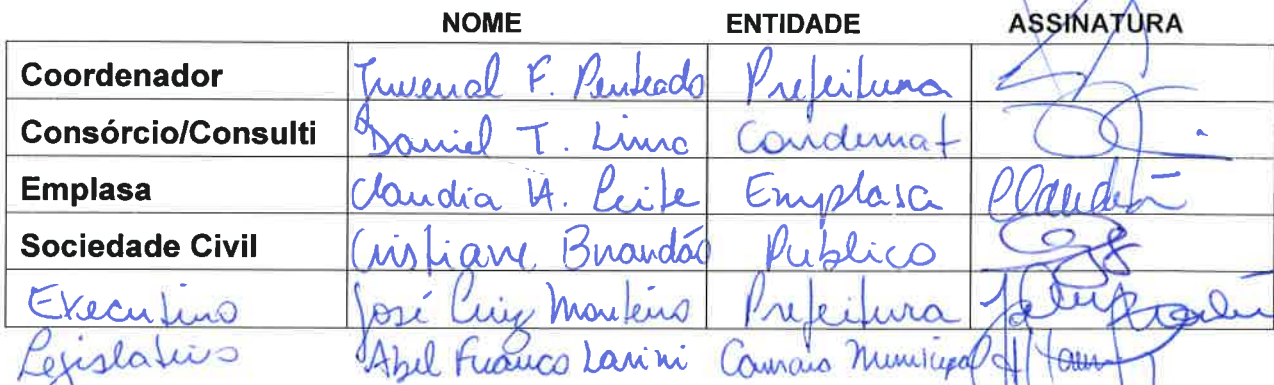 NOME ENTIDADE ASSINATURA
Coordenador Juvenal F. Penteado Prefeitura
Consórcio/Consulti Daniel T. Lima Condemat
Emplasa Claudia A. Leite Emplasa Claudia
Sociedade Civil Cristiane Brandão Público
Executivo José Luiz Monteiro Prefeitura
Legislativo Abel Franco Larini Camara Municipal